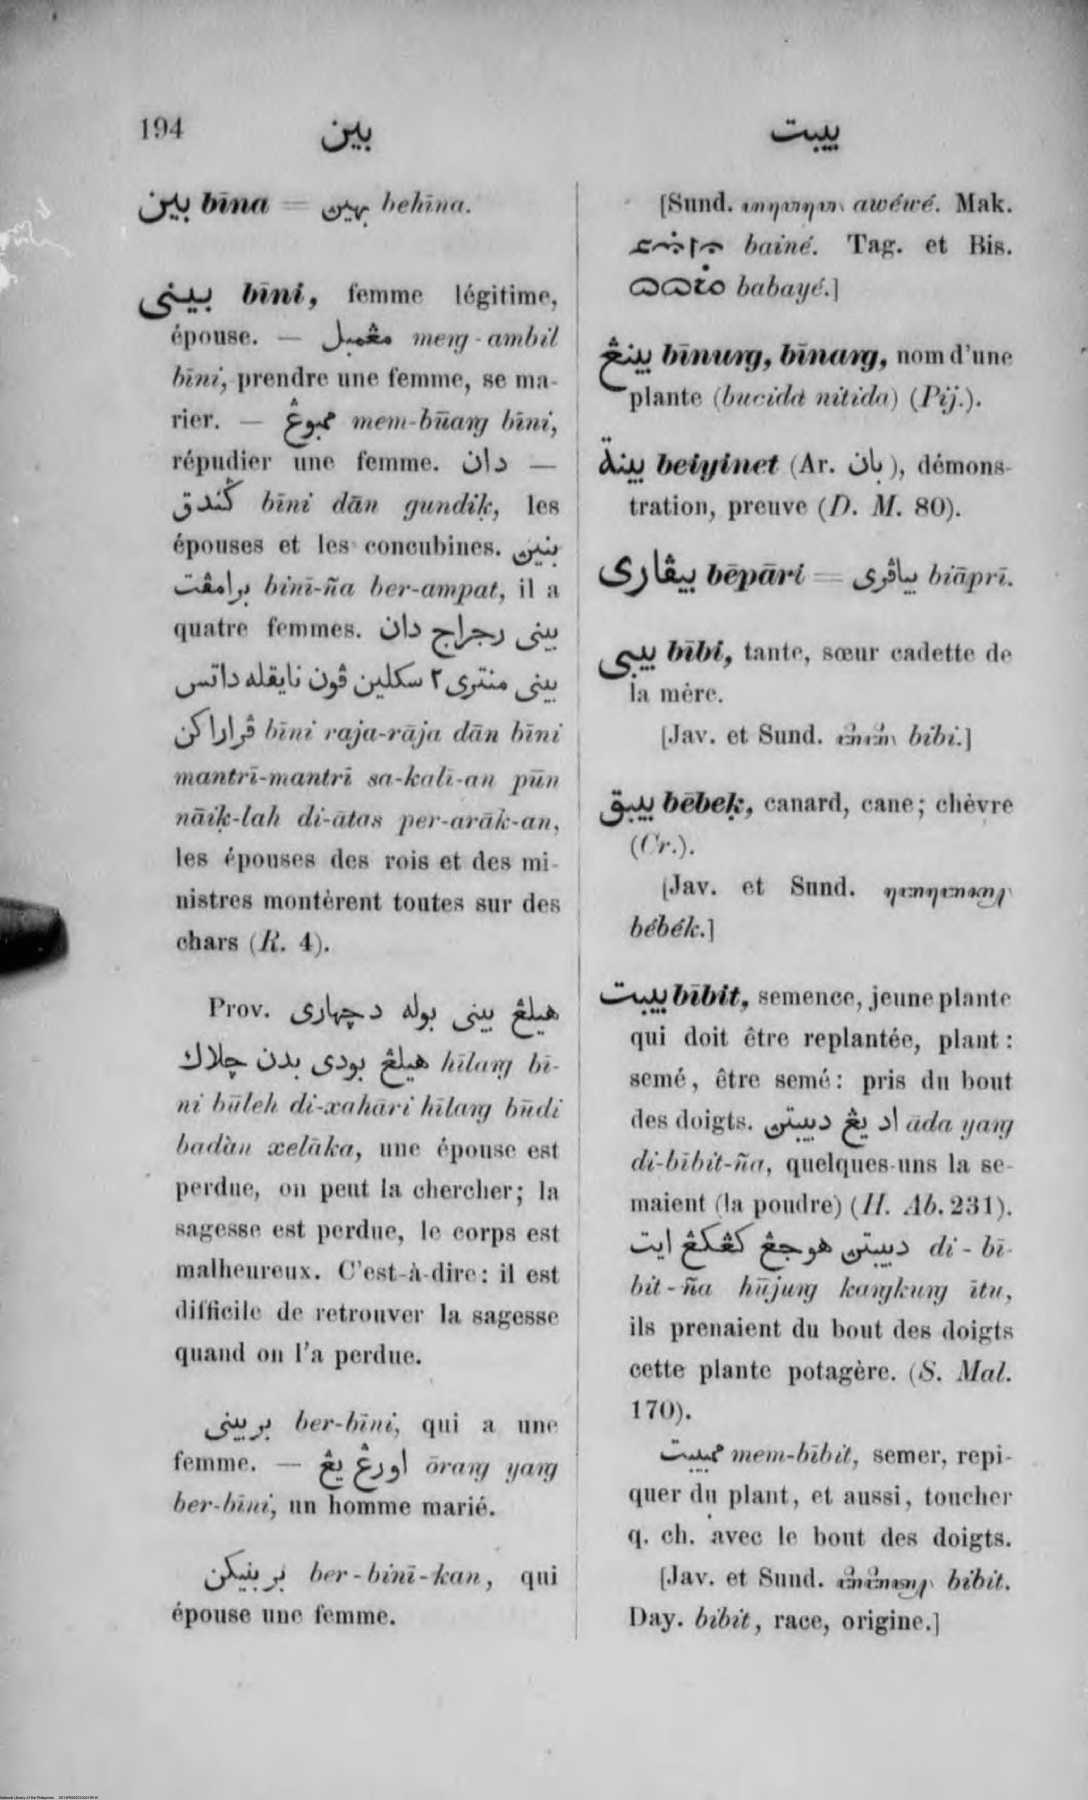 194
بين
بيبت
بين bīna = بهين behīna.
بيني bīni, femme légitime,
épouse. — مڠمبل meng-ambil
bīni, prendre une femme, se ma-
rier. — ممبوڠ mem-būang bīni,
répudier une femme. — دان
ڬندق bīni dān gundiḳ, les
épouses et les concubines. بنين
برامڤت binī-ña ber-ampat, il a
quatre femmes. بيني رجراج دان
بيني منتري٢ سكلين ڤون نايقله داتس
ڤراراكن bīni raja-rāja dān bīni
mantrī-mantrī sa-kalī-an pūn
nāiḳ-lah di-ātas per-arāk-an,
les épouses des rois et des mi-
nistres montèrent toutes sur des
chars (R. 4).
Prov. هيلڠ بيني بوله دچهاري
هيلڠ بودي بدن چلاك hīlang bī-
ni būleh di-xahāri hīlang būdi
badàn xelāka, une épouse est
perdue, on peut la chercher; la
sagesse est perdue, le corps est
malheureux. C'est-à-dire: il est
difficile de retrouver la sagesse
quand on l'a perdue.
بربيني ber-bīni, qui a une
femme. — اورڠ يڠ ōrang yang
ber-bīni, un homme marié.
بربنيكن ber-binī-kan, qui
épouse une femme.
[Sund. awéwé. Mak.
bainé. Tag. et Bis.
babayé.]
بينڠ bīnung, bīnang, nom d'une
plante (bucida nitida) (Pij.).
بينة beiyinet (Ar. بان), démons-
tration, preuve (D. M. 80).
بيڤاري bēpāri = بياڤري biāprī.
بيبي bībi, tante, sœur cadette de
la mère.
[Jav. et Sund. bibi.]
بيبق bēbeḳ, canard, cane; chèvre
(Cr.).
[Jav. et Sund.
bébék.]
بيبت bībit, semence, jeune plante
qui doit être replantée, plant:
semé, être semé: pris du bout
des doigts. اد يڠ دبيبتن āda yang
di-bībit-ña, quelques-uns la se-
maient (la poudre) (H. Ab. 231).
دبيبتن هوجڠ كڠكڠ ايت di-bī-
bit-ña hūjung kangkung ītu,
ils prenaient du bout des doigts
cette plante potagère. (S. Mal.
170).
ممبيبت mem-bībit, semer, repi-
quer du plant, et aussi, toucher
q. ch. avec le bout des doigts.
[Jav. et Sund. bibit.
Day. bibit, race, origine.]